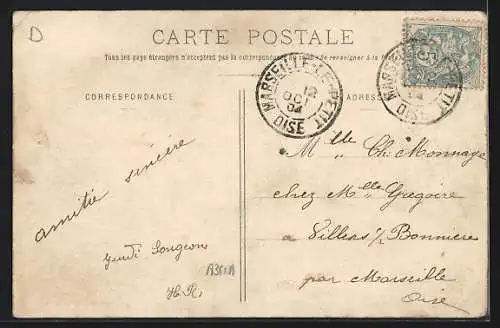 D
CARTE POSTALE
Tous les pays étrangers n'acceptent pas la correspondance au recto (Se renseigner à la
CORRESPONDANCE
MARSEILLE-LE-PETIT
12
OCT
04
OISE
5
OISE
Mlle Ch. Monnaye
chez Mlle Grégoire
à Villers s/ Bonnières
par Marseille
Oise
amitié sincère
Jeudi Songeons
H R.